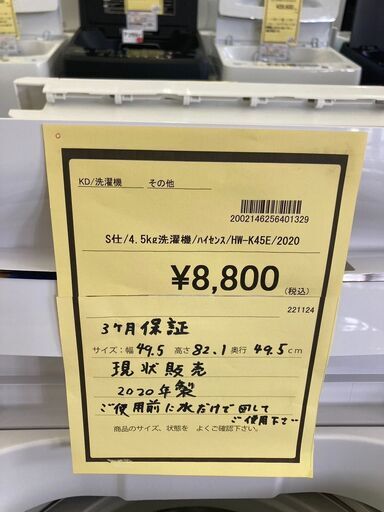 KD/洗濯機 その他
2002146256401329
S仕/4.5kg洗濯機/ハイセンス/HW-K45E/2020
¥8,800
(税込)
221124
3ヶ月保証
サイズ:幅 49.5 高さ 82.1 奥行 49.5cm
現状販売
2020年製
ご使用前に水だけで回して
ご使用下さい
商品のサイズ、状態を よくご確認下さい。